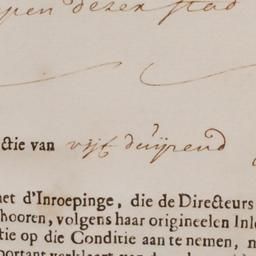 pen dezer stad
ctie van vijf duijzend
net d'Inroepinge, die de Directeurs
hooren, volgens haar origineelen Inl
tie op die Conditie aan te nemen, n